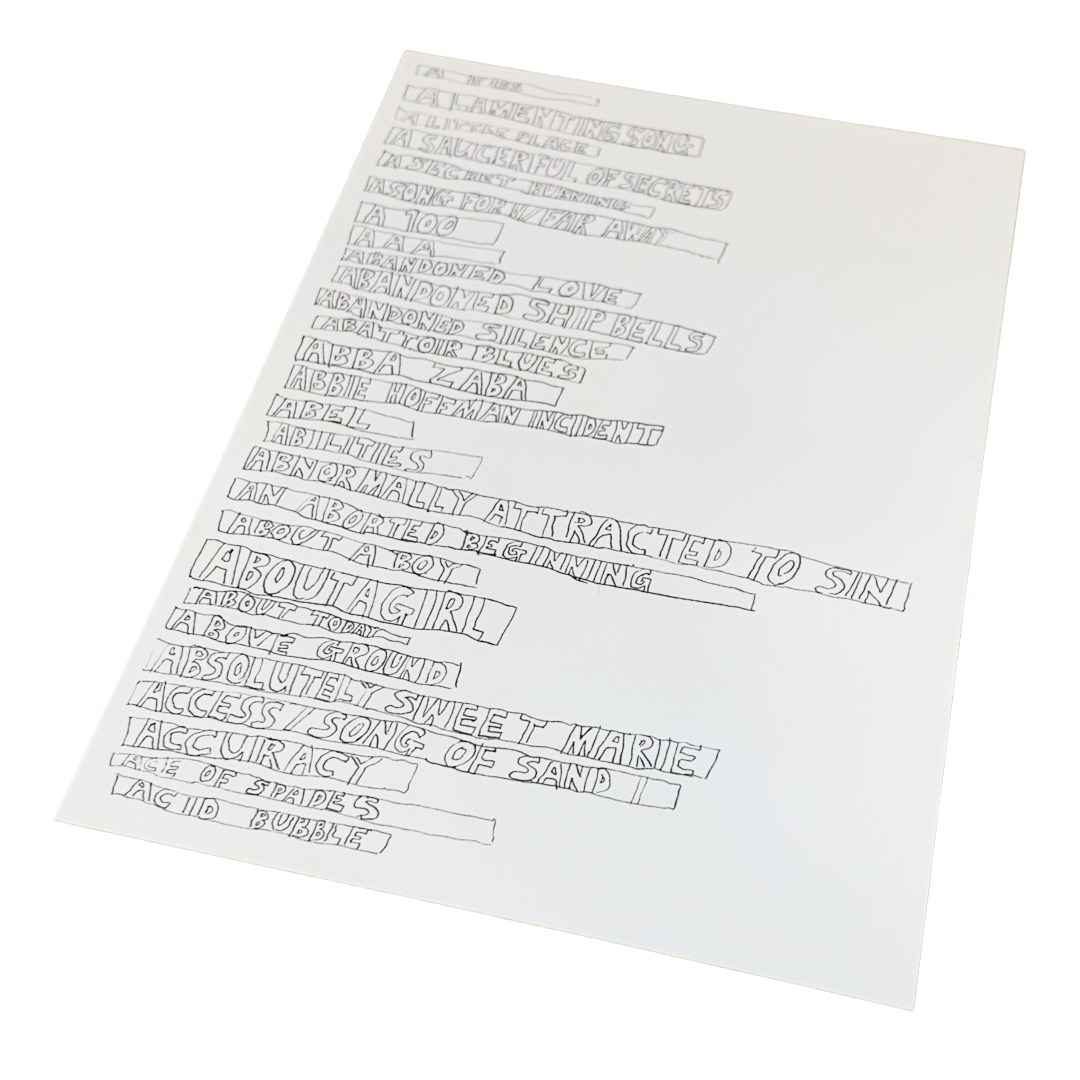 A
A LAMENTING SONG
A LITTLE PLACE
A SAUCERFUL OF SECRETS
A SECRET BURNING
A SONG FOR W/ FAR AWAY
A 100
A A A
ABANDONED LOVE
ABANDONED SHIP BELLS
ABANDONED SILENCE
ABATTOIR BLUES
ABBA ZABA
ABBIE HOFFMAN INCIDENT
ABEL
ABILITIES
ABNORMALLY ATTRACTED TO SIN
AN ABORTED BEGINNING
ABOUT A BOY
ABOUT A GIRL
ABOUT TODAY
ABOVE GROUND
ABSOLUTELY SWEET MARIE
ACCESS / SONG OF SAND
ACCURACY
ACE OF SPADES
ACID BUBBLE